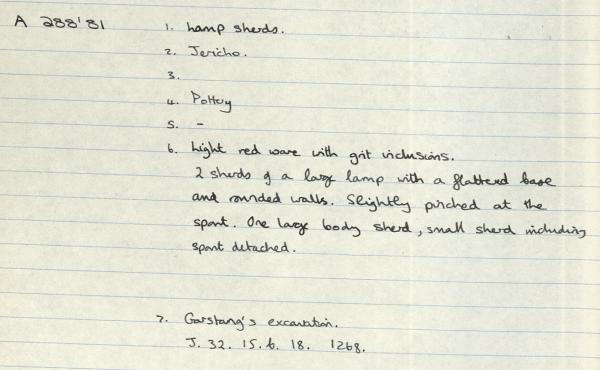 A 288'81
1. Lamp sherds.
2. Jericho.
3.
4. Pottery
5. -
6. Light red ware with grit inclusions.
2 sherds of a large lamp with a flattened base
and rounded walls. Slightly pinched at the
spout. One large body sherd, small sherd including
spout detached.
7. Garstang's excavation.
J. 32. 15. 6. 18. 1268.